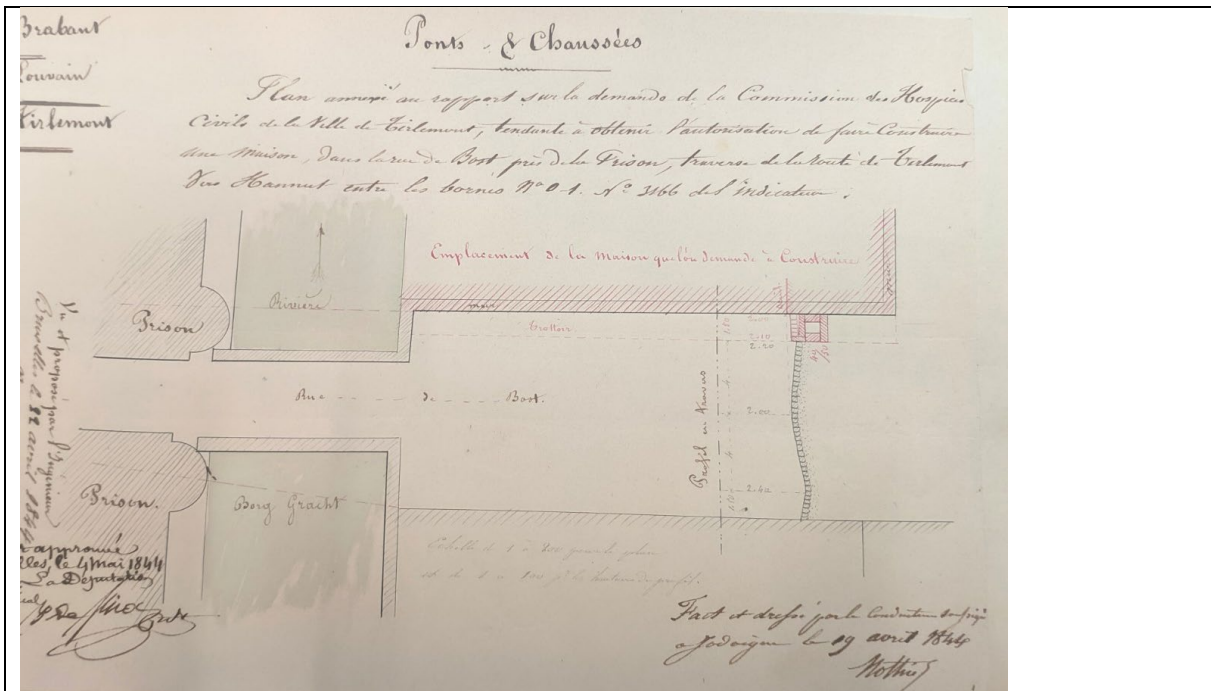 Brabant
Louvain
Tirlemont
Ponts & Chaussées
Plan annexé au rapport sur la demande de la Commission des Hospices
Civils de la Ville de Tirlemont, tendante à obtenir l'autorisation de faire Construire
une maison, dans la rue de Bost près de la Prison, traverse de la Route de Tirlemont
Vers Hannut entre les bornes Nº 0-1. Nº 3166 de l'indicateur.
Emplacement de la maison que l'on demande à Construire
mur
Rivière
Prison
Trottoir
2.00
2.10
2.20
Rue de Bost.
Profil en travers
2.00
2.40
Prison.
Borg Gracht
Echelle de 1 à 200 pour le plan
et de 1 à 100 p. les hauteurs du profil.
Vu et proposé par l'Ingénieur
Bruxelles le 22 avril 1844
approuvé
les, le 4 Mai 1844
La Députation
Fact et dressé par le Conducteur soussigné
a Jodoigne le 19 avril 1844